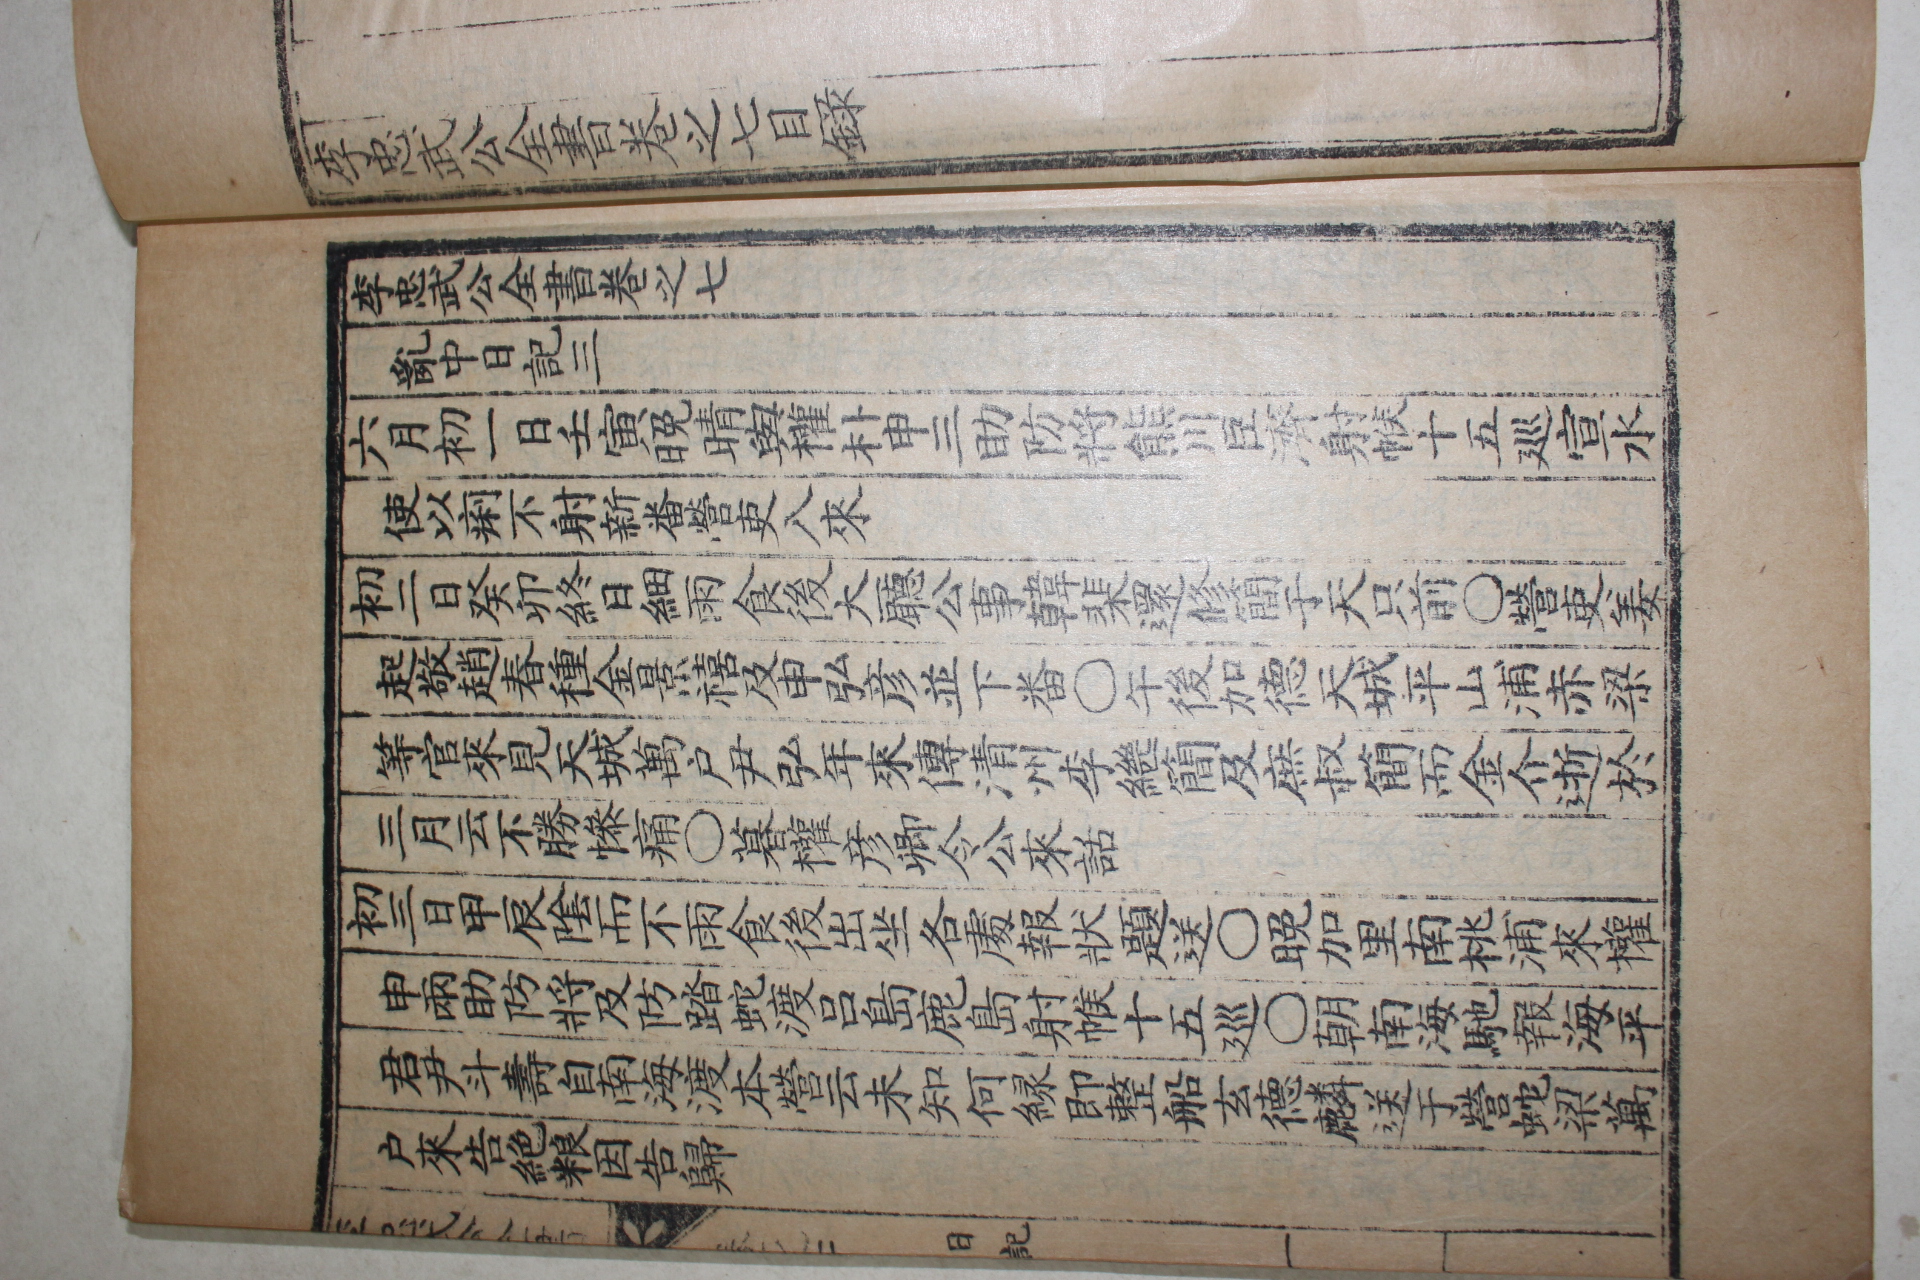 李忠武公全書卷之七目錄
李忠武公全書卷之七
亂中日記三
六月初一日壬寅晚晴與權朴申三助防將熊川臣濟射帿十五巡宣水
使以痢不射新番營吏入來
初二日癸卯終日細雨食後大廳公事韓棐還修簡于天只前○營吏姜
起敬趙春種金景禧及申弘彦並下番○午後加德天城平山浦赤梁
等官來見天城萬户尹弘年來傳清州李繼簡及庶叔簡而金介逝於
三月云不勝慘痛○暮權彦卿令公來話
初三日甲辰陰而不雨食後出坐各處報狀題送○晚加里南桃浦來權
申兩助防將及防踏蛇渡呂島鹿島射帿十五巡○朝南海馳報海平
君尹斗壽自南海渡本營云未知何緣即整船玄德麟送于營蛇梁萬
户來告絶粮因告歸
日記
一